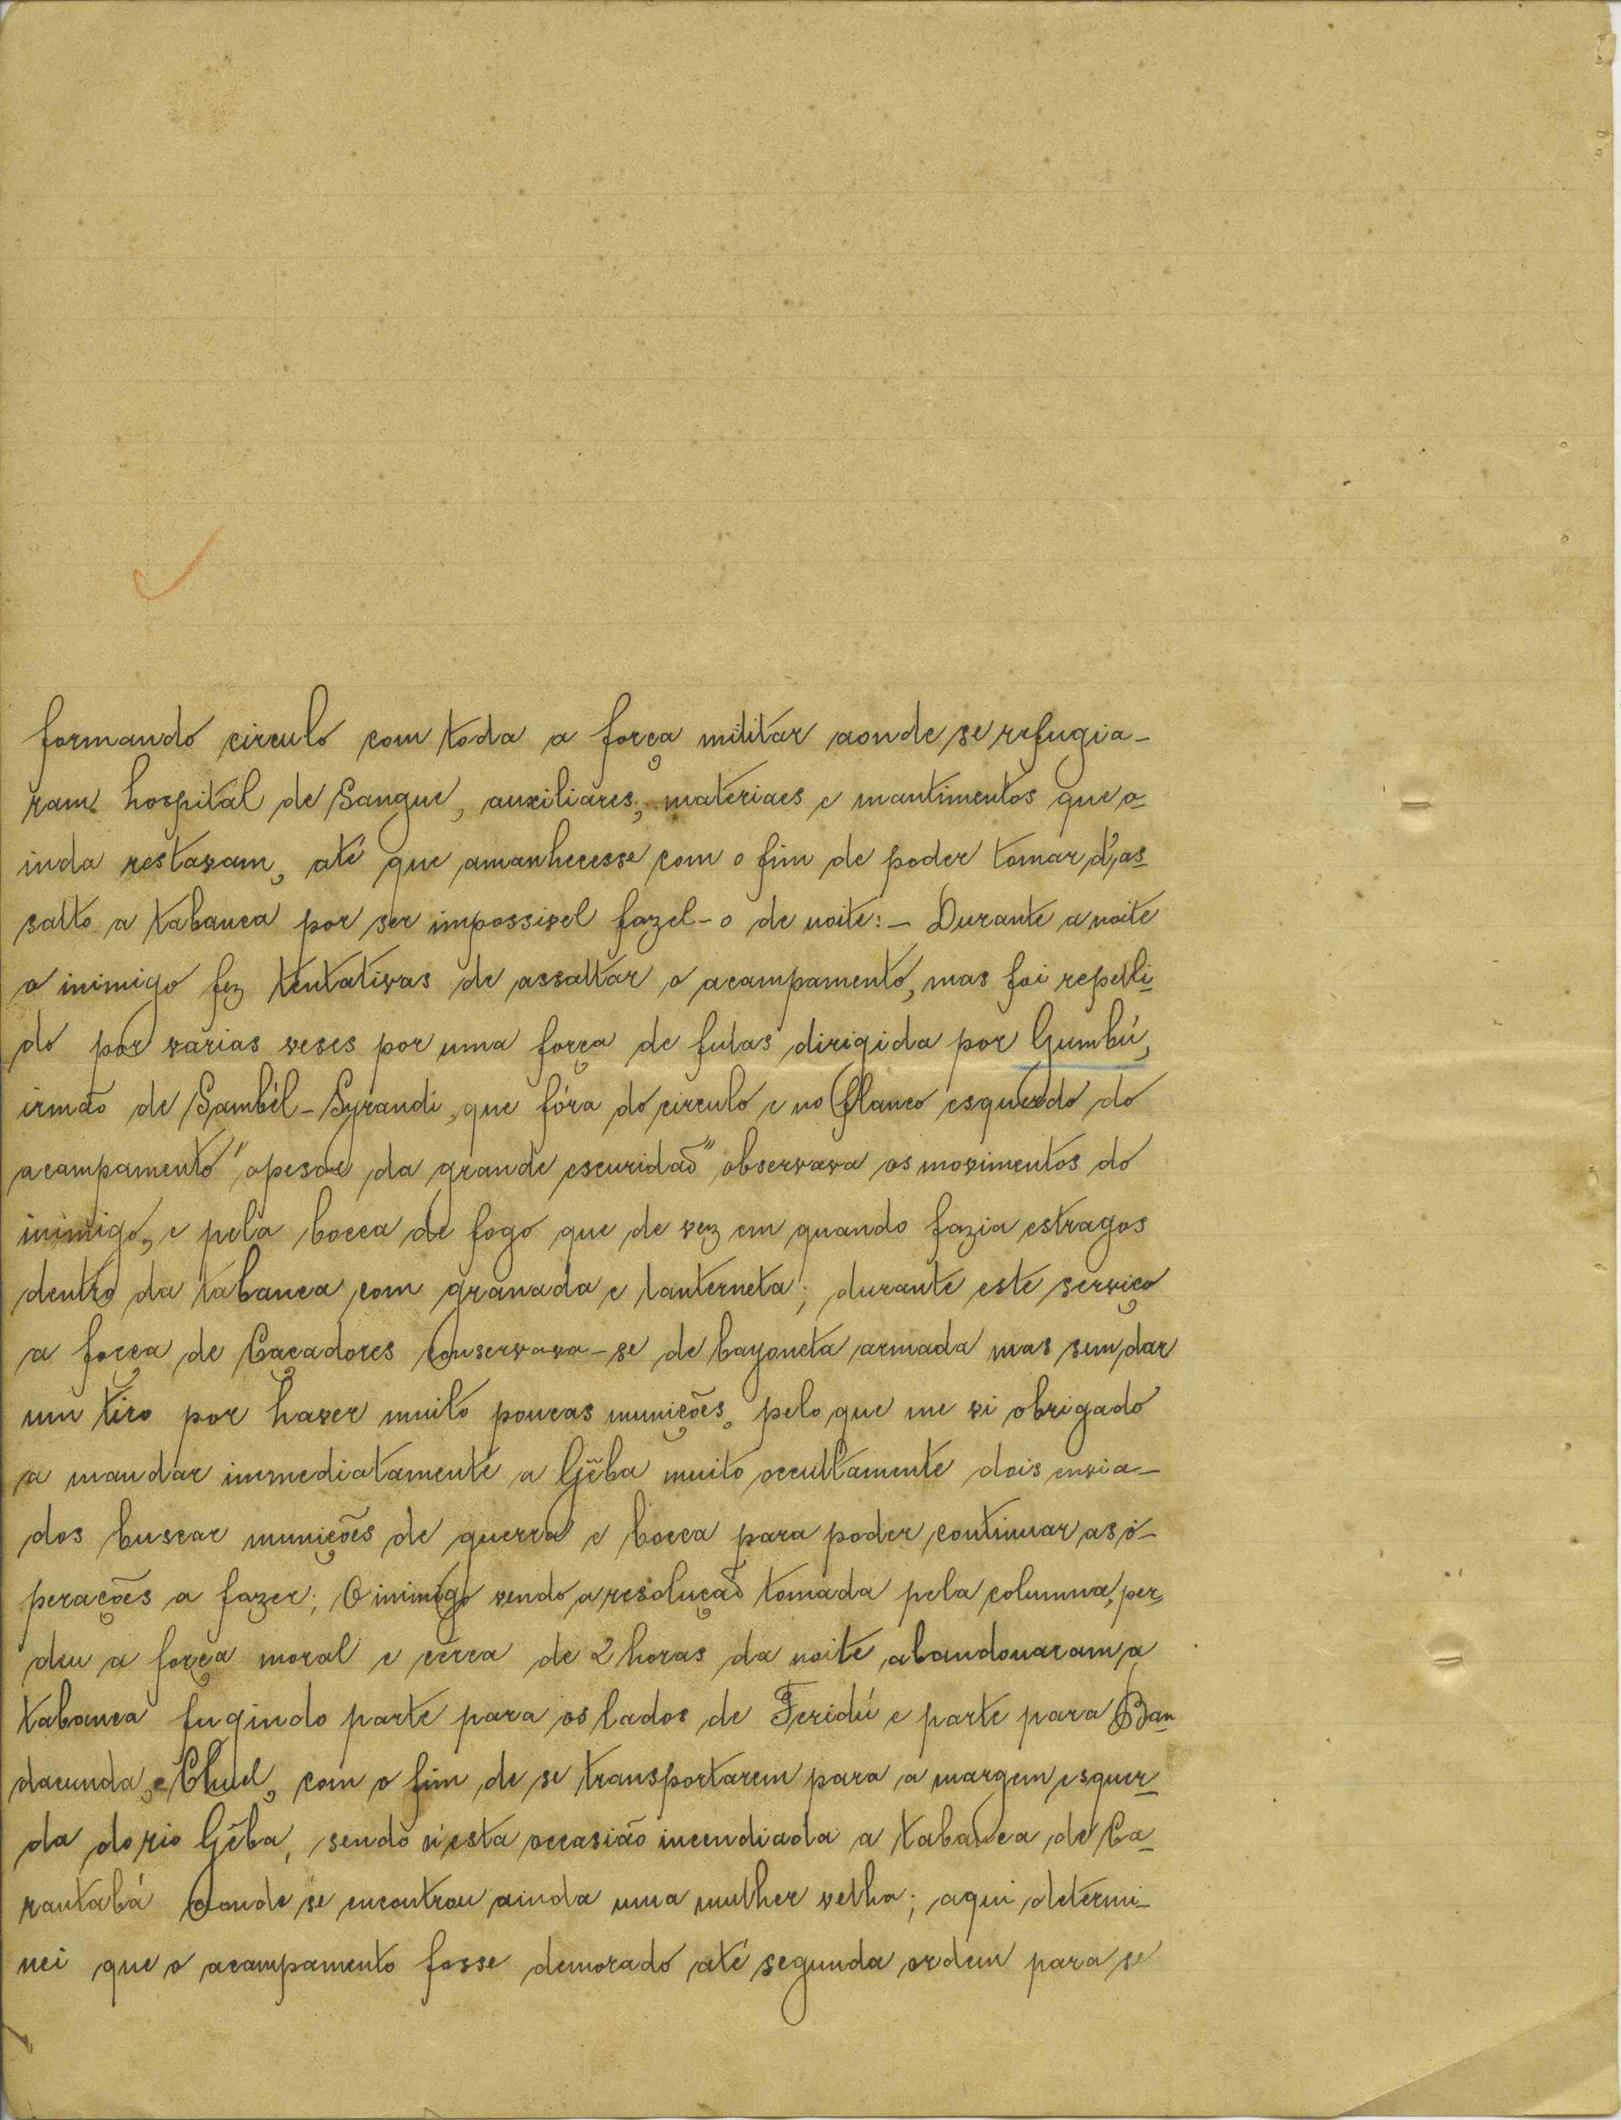 formando circulo com toda a força militar aonde se refugia-
ram hospital de Sangue, auxiliares, materiaes e mantimentos que a-
inda restavam, até que amanhecesse com o fim de poder tomar d'as-
salto a tabanca por ser impossivel fazel-o de noite:- Durante a noite
o inimigo fez tentativas de assaltar o acampamento, mas foi repelli-
do por varias veses por uma força de futas dirigida por Gumbú,
irmão de Sambél-Syrandi, que fóra do circulo e no flanco esquerdo do
acampamento "apesar da grande escuridão" observava os movimentos do
inimigo, e pela bocca de fogo que de vez em quando fazia estragos
dentro da tabanca com granada e lanterneta; durante este serviço
a força de Caçadores conservava-se de bayoneta armada mas sem dar
um tiro por haver muito poucas munições, pelo que me vi obrigado
a mandar immediatamente a Gêba muito occultamente dois envia-
dos buscar munições de guerra e bocca para poder continuar as o-
perações a fazer; O inimigo vendo a resolução tomada pela columna, per-
deu a força moral e cêrca de 2 horas da noite abandonaram a
tabanca fugindo parte para os lados de Feridú e parte para Ban-
dacunda, e Chuel, com o fim de se transportarem para a margem esquer-
da do rio Gêba, sendo n'esta occasião incendiada a tabanca de Ca-
rantabá aonde se encontrou ainda uma mulher velha; aqui determi-
nei que o acampamento fosse demorado até segunda ordem para se